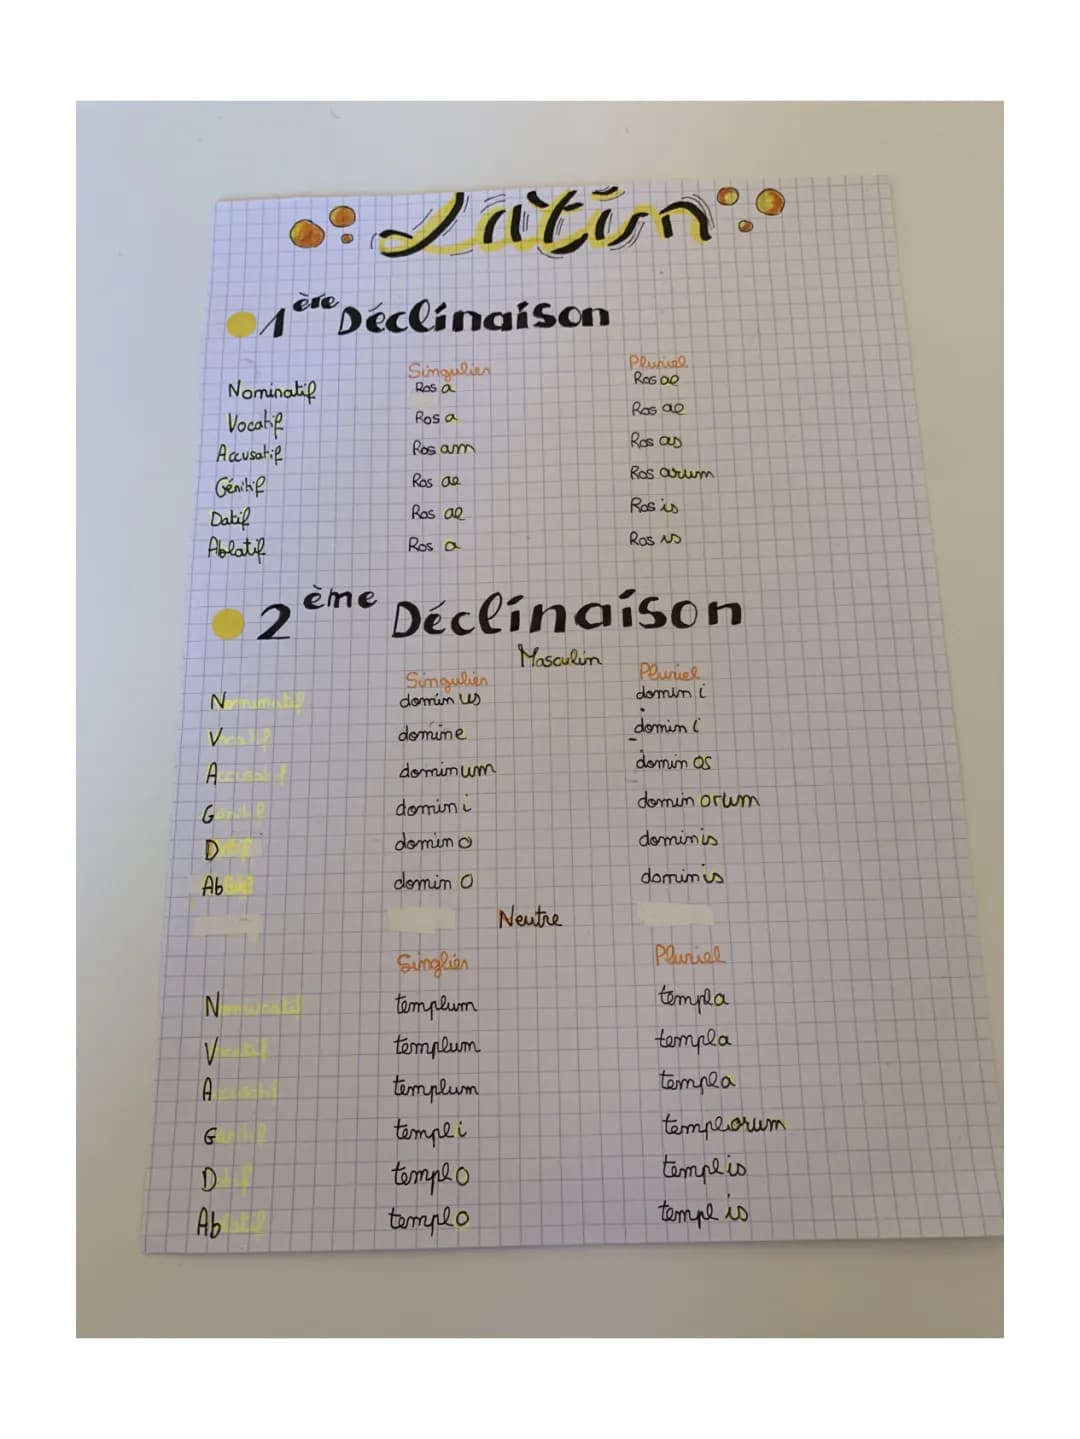 Latin
1ère Déclinaison
Singulier Pluriel
Nominatif Ros a Ros ae
Vocatif Ros a Ros ae
Accusatif Ros am Ros as
Génitif Ros ae Ros arum
Datif Ros ae Ros is
Ablatif Ros a Ros is
2ème Déclinaison
Masculin
Singulier Pluriel
Nominatif domin us domin i
Vocatif domine domin i
Accusatif dominum domin os
Génitif domin i domin orum
Datif domin o dominis
Ablatif domin o dominis
Neutre
Singlier Pluriel
Nominatif templum templa
Vocatif templum templa
Accusatif templum templa
Génitif templi templorum
Datif templo templis
Ablatif templo templ is